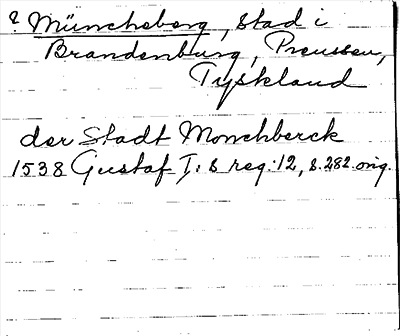 ? Müncheberg, stad i
Brandenburg, Preussen,
Tyskland
der Stadt Monchberck
1538 Gustaf I:s reg. 12, s. 282 orig.